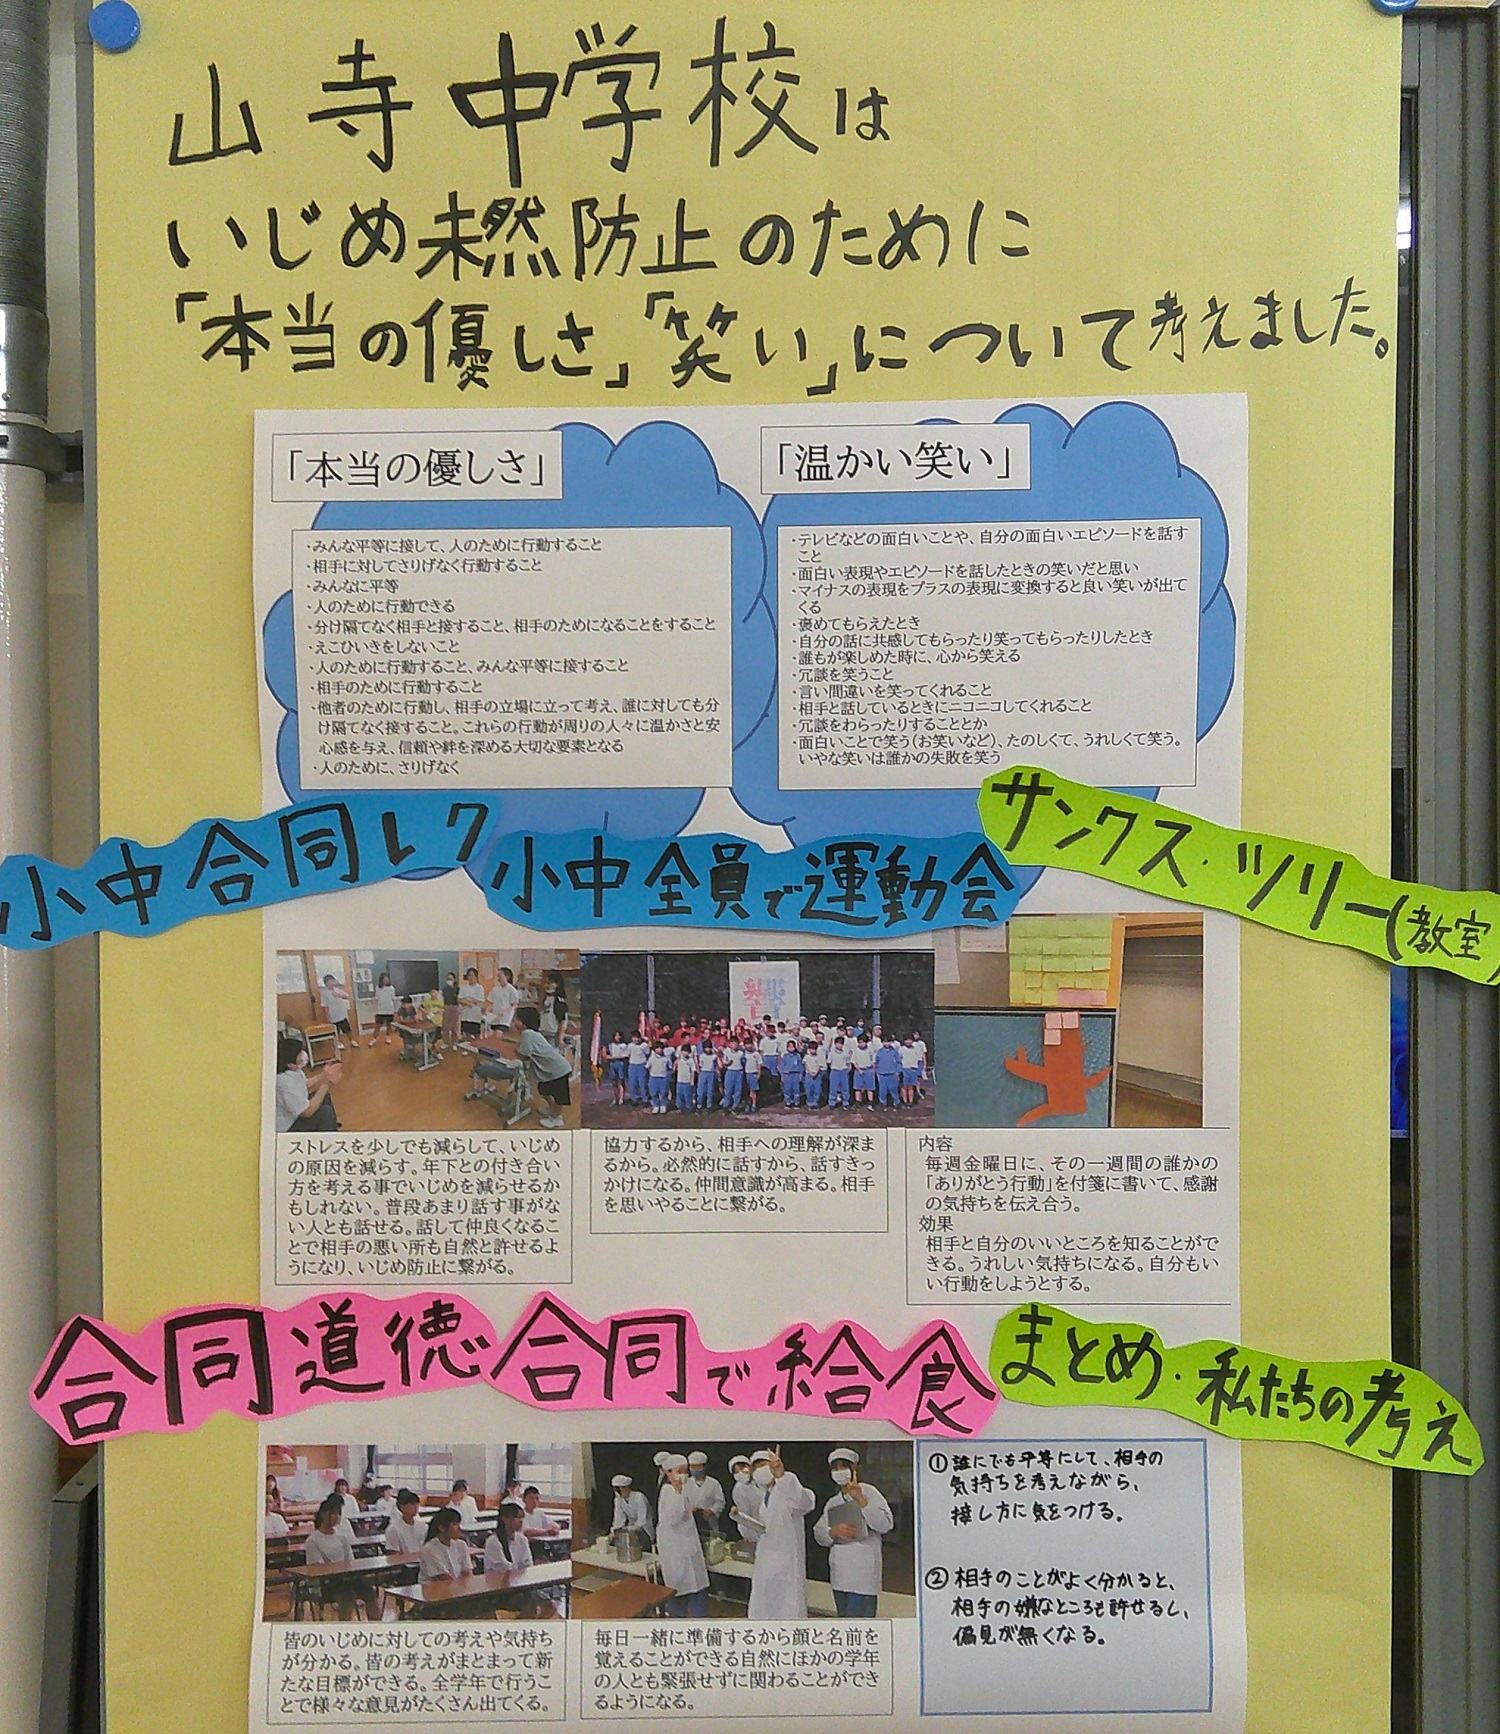 山寺中学校は
いじめ未然防止のために
「本当の優しさ」「笑い」について考えました。
「本当の優しさ」
・みんな平等に接して、人のために行動すること
・相手に対してさりげなく行動すること
・みんなに平等
・人のために行動できる
・分け隔てなく相手と接すること、相手のためになることをすること
・えこひいきをしないこと
・人のために行動すること、みんな平等に接すること
・相手のために行動すること
・他者のために行動し、相手の立場に立って考え、誰に対しても分
け隔てなく接すること。これらの行動が周りの人々に温かさと安
心感を与え、信頼や絆を深める大切な要素となる
・人のために、さりげなく
「温かい笑い」
・テレビなどの面白いことや、自分の面白いエピソードを話す
こと
・面白い表現やエピソードを話したときの笑いだと思い
・マイナスの表現をプラスの表現に変換すると良い笑いが出て
くる
・褒めてもらえたとき
・自分の話に共感してもらったり笑ってもらったりしたとき
・誰もが楽しめた時に、心から笑える
・冗談を笑うこと
・言い間違いを笑ってくれること
・相手と話しているときにニコニコしてくれること
・冗談をわらったりすることとか
・面白いことで笑う(お笑いなど)、たのしくて、うれしくて笑う。
いやな笑いは誰かの失敗を笑う
小中合同レク
小中全員で運動会
サンクス・ツリー(教室)
ストレスを少しでも減らして、いじめ
の原因を減らす。年下との付き合い
方を考える事でいじめを減らせるか
もしれない。普段あまり話す事がな
い人とも話せる。話して仲良くなるこ
とで相手の悪い所も自然と許せるよ
うになり、いじめ防止に繋がる。
協力するから、相手への理解が深ま
るから。必然的に話すから、話すきっ
かけになる。仲間意識が高まる。相手
を思いやることに繋がる。
内容
毎週金曜日に、その一週間の誰かの
「ありがとう行動」を付箋に書いて、感謝
の気持ちを伝え合う。
効果
相手と自分のいいところを知ることがで
きる。うれしい気持ちになる。自分もい
い行動をしようとする。
合同道徳
合同で給食
まとめ・私たちの考え
皆のいじめに対しての考えや気持ち
が分かる。皆の考えがまとまって新
たな目標ができる。全学年で行うこ
とで様々な意見がたくさん出てくる。
毎日一緒に準備するから顔と名前を
覚えることができる自然にほかの学年
の人とも緊張せずに関わることができ
るようになる。
①誰にでも平等にして、相手の
気持ちを考えながら、
接し方に気をつける。
②相手のことがよく分かると、
相手の嫌なところも許せるし、
偏見が無くなる。